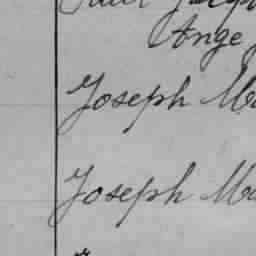 Ange
Joseph Ma
Joseph Ma